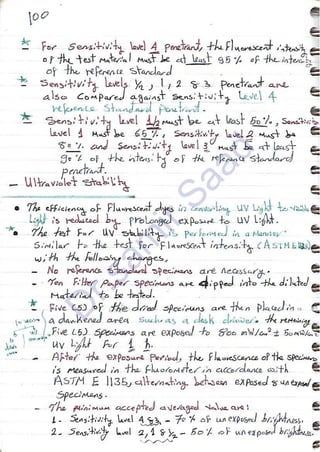 100
* For Sensitivity level 4 penetrant, the Fluorescent intensity
of the test Material Must be at least 95% of the intensity
of the reference Standard
* Sensitivity levels 1/2, 1, 2 & 3 Penetrant are
also Compared against Sensitivity Level 4
reference Standard Penetrant.
* Sensitivity level 1/2 must be at least 50%, Sensitivity
level 1 Must be 65%, Sensitivity level 2 Must be
80% and Sensitivity level 3 must be at least
90% of the intensity of the reference Standard
penetrant.
- Ultraviolet Stability
• The efficiency of Fluorescent dyes in converting UV Light to visible
Light is reduced by prolonged exposure to UV Light.
• The test For UV stability is performed in a Manner
Similar to the test for Fluorescent intensity (ASTM E
with the following changes,
- No reference Standard specimens are necessary.
- Ten Filter Paper specimens are dipped into the diluted
Material to be tested.
- Five (5) of the dried specimens are then placed in
a darkened area Such as a desk drawer. the remaining
Five (5) specimens are exposed to 800 mW/cm² ±
UV Light For 1 h.
- After the exposure Period, the Fluorescence of the specimens
is measured in the Fluorometer in accordance with
ASTM E 1135, alternating between exposed & unexposed
Specimens.
- The minimum accepted averaged value are:
1- Sensitivity level 4 & 3 - 70% of unexposed brightness.
2- Sensitivity level 2, 1 & 1/2 - 50% of unexposed brightness.